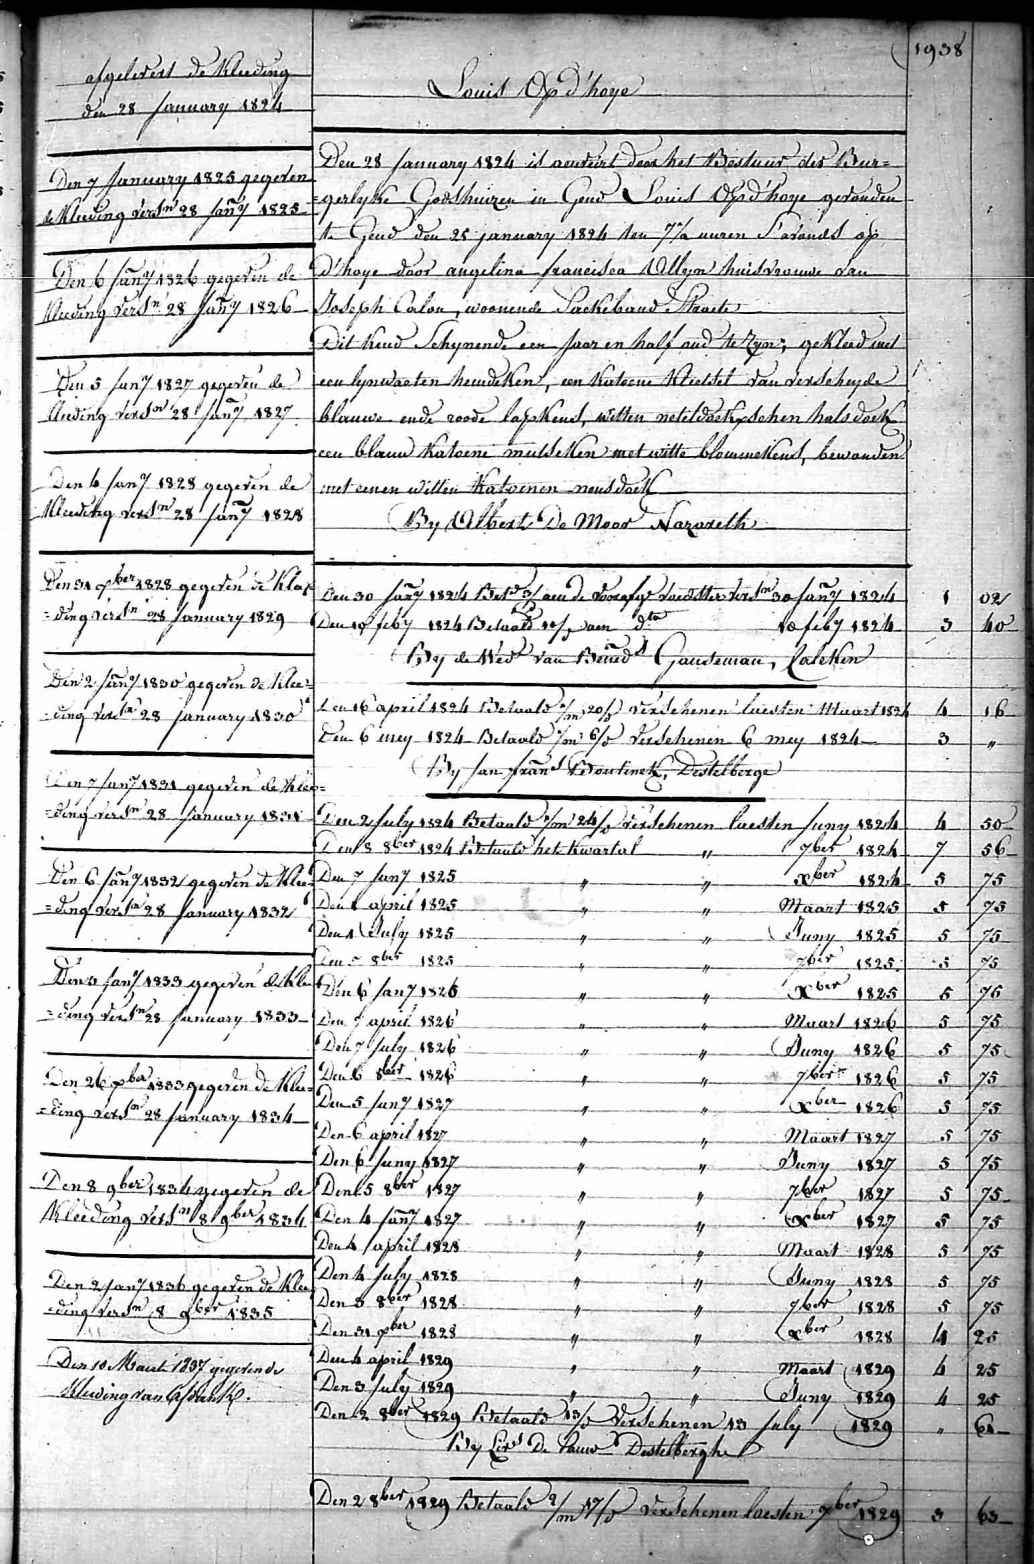 1938
afgelevert de Kleeding
den 28 January 1824
Den 7 January 1825 gegeven
de Kleeding versn 28 Jany 1825
Den 6 Jany 1826 gegeven de
Kleeding versn 28 Jany 1826
Den 5 Jany 1827 gegeven de
Kleeding versn 28 Jany 1827
Den 6 Jany 1828 gegeven de
Kleeding versn 28 Jany 1828
Den 31 xber 1828 gegeven de Klee
=ding versn 28 January 1829
Den 2 Jany 1830 gegeven de Klee=
=ding versn 28 January 1830
Den 7 Jany 1831 gegeven de Klee=
=ding versn 28 January 1831
Den 6 Jany 1832 gegeven de Klee
=ding versn 28 January 1832
Den 4 Jany 1833 gegeven de Klee
=ding versn 28 January 1833
Den 26 xber 1833 gegeven de Klee=
=ding versn 28 January 1834
Den 8 9ber 1834 gegeven de
Kleeding versn 8 9ber 1834
Den 2 Jany 1836 gegeven de Klee
=ding versn 8 9ber 1835
Den 10 Maart 1837 gegeven de
Kleeding van
Louis Op d'hoye
Den 28 January 1824 is aenveirt door het Bestuur der Bur=
=gerlyke Godshuizen in Gend Louis Op d'hoye gevonden
te Gend den 25 january 1824 ten 7 1/2 uuren s'avonds op
d'hoye door angelina francisca Ollyn huisvrouwe van
Joseph Calon, woonende Straete
Dit Kind Schynende een Jaar en half oud te zyn, gekleed met
een lynwaeten hemdeken, een Katoene Kleetsel van verscheyde
blauwe ende roode lapkens, witten netildoekschen halsdoek
een blauw Katoene mutseken met witte blommekens, bewonden
met eenen witten Katoenen neusdoek
By Albert De Moor Nazareth
Den 30 Jany 1824 aen de versn 30 Jany 1824 1 02
Den 10 feby 1824 Betaald 10/d aen dto 10 feby 1824 3 40
By de Wed. van Bened Gandeman, Laeken
Den 16 april 1824 Betaald 1/m 20/d verschenen laesten Maart 1824 4 16
Den 6 mey 1824 Betaald 1/m 6/d verschenen 6 mey 1824 3 "
By Jan frans Boutinck, Destelberge
Den 2 July 1824 Betaald 1/m 24/d verschenen laesten Juny 1824 4 50
Den 8 8ber 1824 Betaald het Kwartal " 7ber 1824 7 56
Den 7 Jany 1825 " " xber 1824 5 75
Den 1 april 1825 " " Maart 1825 5 75
Den 1 July 1825 " " Juny 1825 5 75
Den 5 8ber 1825 " " 7ber 1825 5 75
Den 6 Jany 1826 " " xber 1825 5 76
Den 7 april 1826 " " Maart 1826 5 75
Den 7 July 1826 " " Juny 1826 5 75
Den 6 8ber 1826 " " 7ber 1826 5 75
Den 5 Jany 1827 " " xber 1826 5 75
Den 6 april 1827 " " Maart 1827 5 75
Den 6 Juny 1827 " " Juny 1827 5 75
Den 5 8ber 1827 " " 7ber 1827 5 75
Den 4 Jany 1827 " " xber 1827 5 75
Den 4 april 1828 " " Maart 1828 5 75
Den 4 July 1828 " " Juny 1828 5 75
Den 3 8ber 1828 " " 7ber 1828 5 75
Den 31 xber 1828 " " xber 1828 4 25
Den 4 april 1829 " " Maart 1829 4 25
Den 3 July 1829 " " Juny 1829 4 25
Den 2 8ber 1829 Betaald 13/d verschenen 13 July 1829 " 61
By De Pauw Destelberghe
Den 2 8ber 1829 Betaald 2/m 17/d verschenen laesten 7ber 1829 3 63